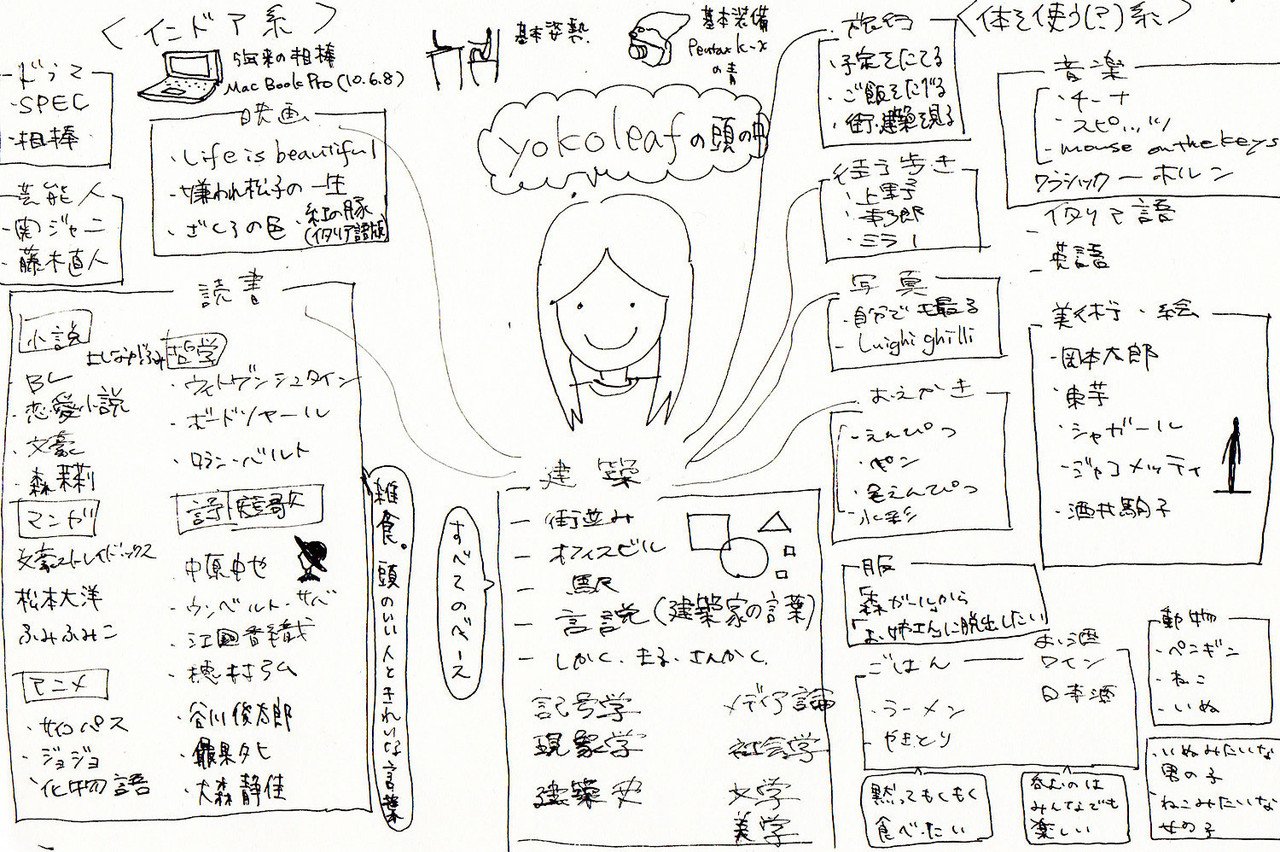 ＜インドア系＞
ドラマ
・SPEC
・相棒
5年来の相棒
MacBookPro(10.6.8)
基本姿勢
基本装備
Pentax k-x
の青
芸能人
・関ジャニ
・藤木直人
映画
・Life is beautiful
・嫌われ松子の一生
・ざくろの色・紅の豚
(イタリア語版)
yokoleafの頭の中
読書
小説
・BL
・恋愛小説
・文豪
・森茉莉
マンガ
よしながふみ
文豪ストレイドッグス
松本大洋
ふみふみこ
アニメ
・サイコパス
・ジョジョ
・化物語
哲学
・ウィトゲンシュタイン
・ボードリヤール
・ロラン・バルト
詩・短歌
・中原中也
・ウンベルト・サバ
・江國香織
・穂村弘
・谷川俊太郎
・最果タヒ
・大森静佳
雑食。頭のいい人ときれいな言葉
すべてのベース
建築
- 街並み
- オフィスビル
- 駅
- 言説(建築家の言葉)
- しかく、まる、さんかく
記号学
メディア論
現象学
社会学
建築史
文学
美学
＜体を使う(?)系＞
旅行
・予定をたてる
・ご飯をたべる
・街・建築を見る
街歩き
・上野
・ミラノ
写真
・自分でも撮る
・Luighi ghilli
おえかき
・えんぴつ
・ペン
・色えんぴつ
・水彩
服
「森ガール」から
「お姉さん」に脱出したい
ごはん
・ラーメン
・やきとり
黙ってもくもく
食べたい
お酒
ワイン
日本酒
呑むのは
みんなでも
楽しい
音楽
・チーナ
・スピッツ
・mouse on the keys
クラシック ー ホルン
- イタリア語
- 英語
美術・絵
・岡本太郎
・束芋
・シャガール
・ジャコメッティ
・酒井駒子
動物
・ペンギン
・ねこ
・いぬ
・いぬみたいな
男の子
・ねこみたいな
女の子